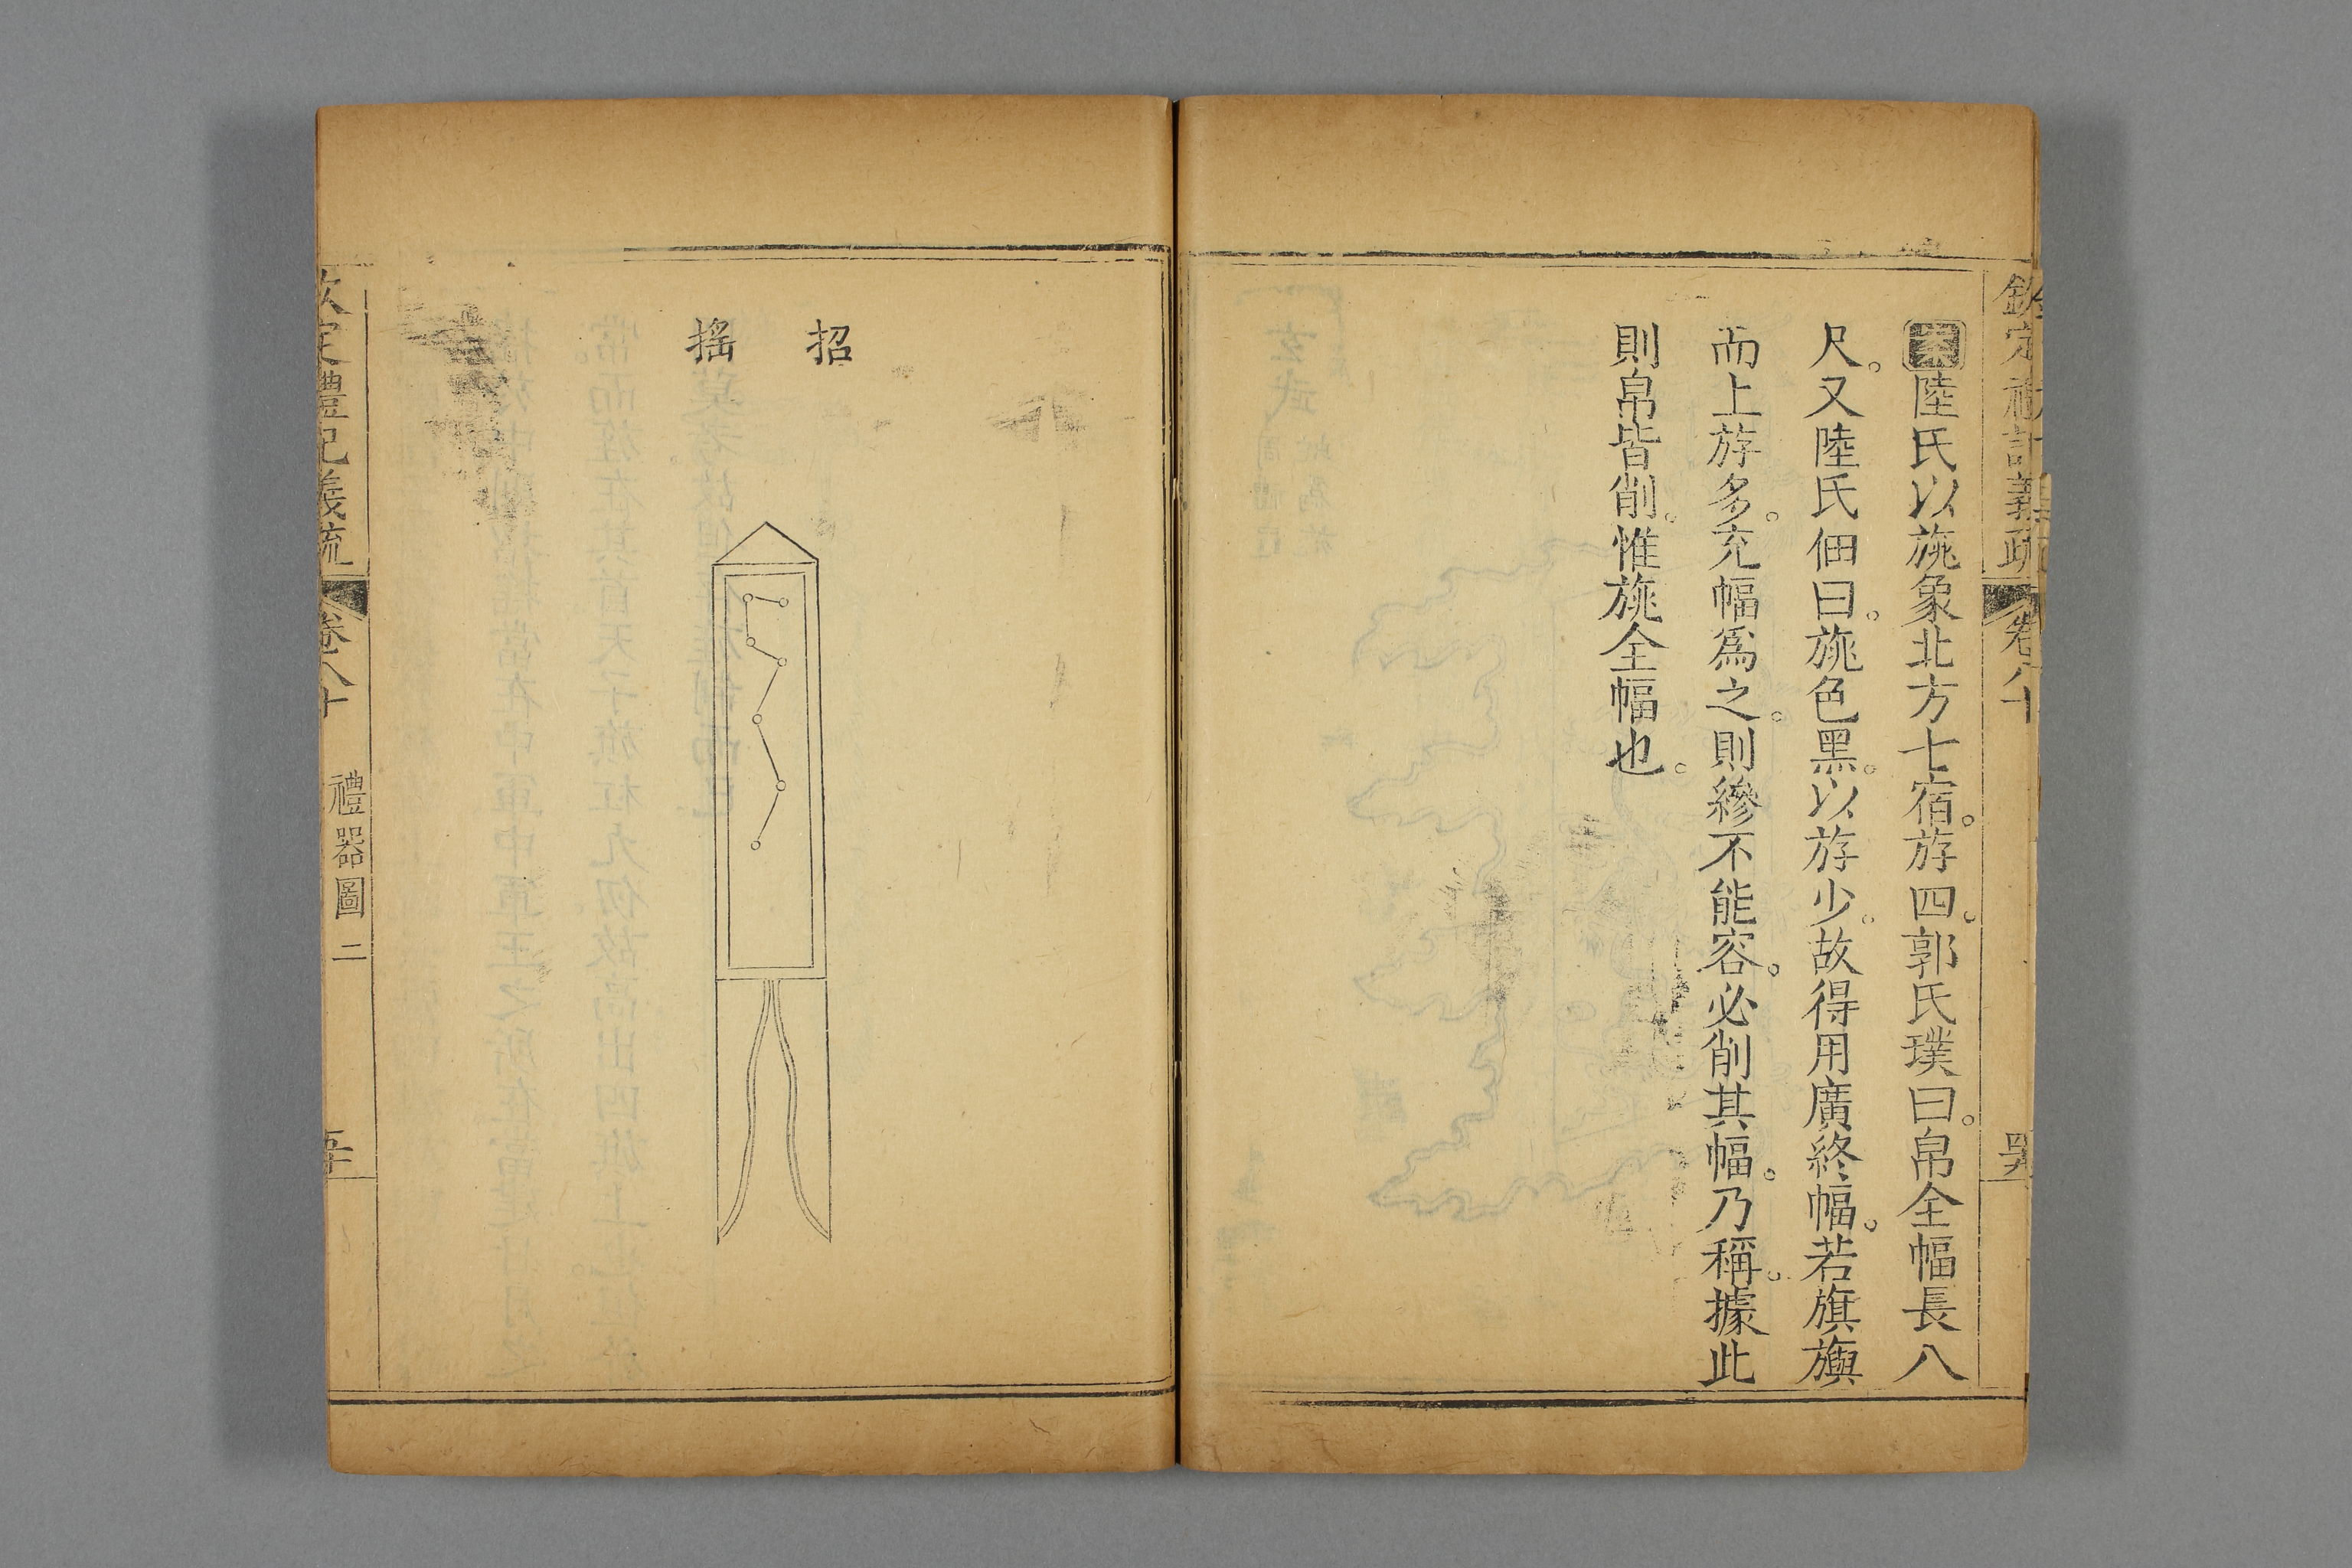 欽定禮記義疏 卷八十
案陸氏以旐象北方七宿。斿四。郭氏璞曰。帛全幅長八
尺。又陸氏佃曰。旐色黑。以斿少。故得用廣終幅。若旗旟
而上斿多。充幅爲之。則縿不能容。必削其幅。乃稱。據此
則帛皆削。惟旐全幅也。
招
搖
欽定禮記義疏 卷八十 禮器圖二 五十